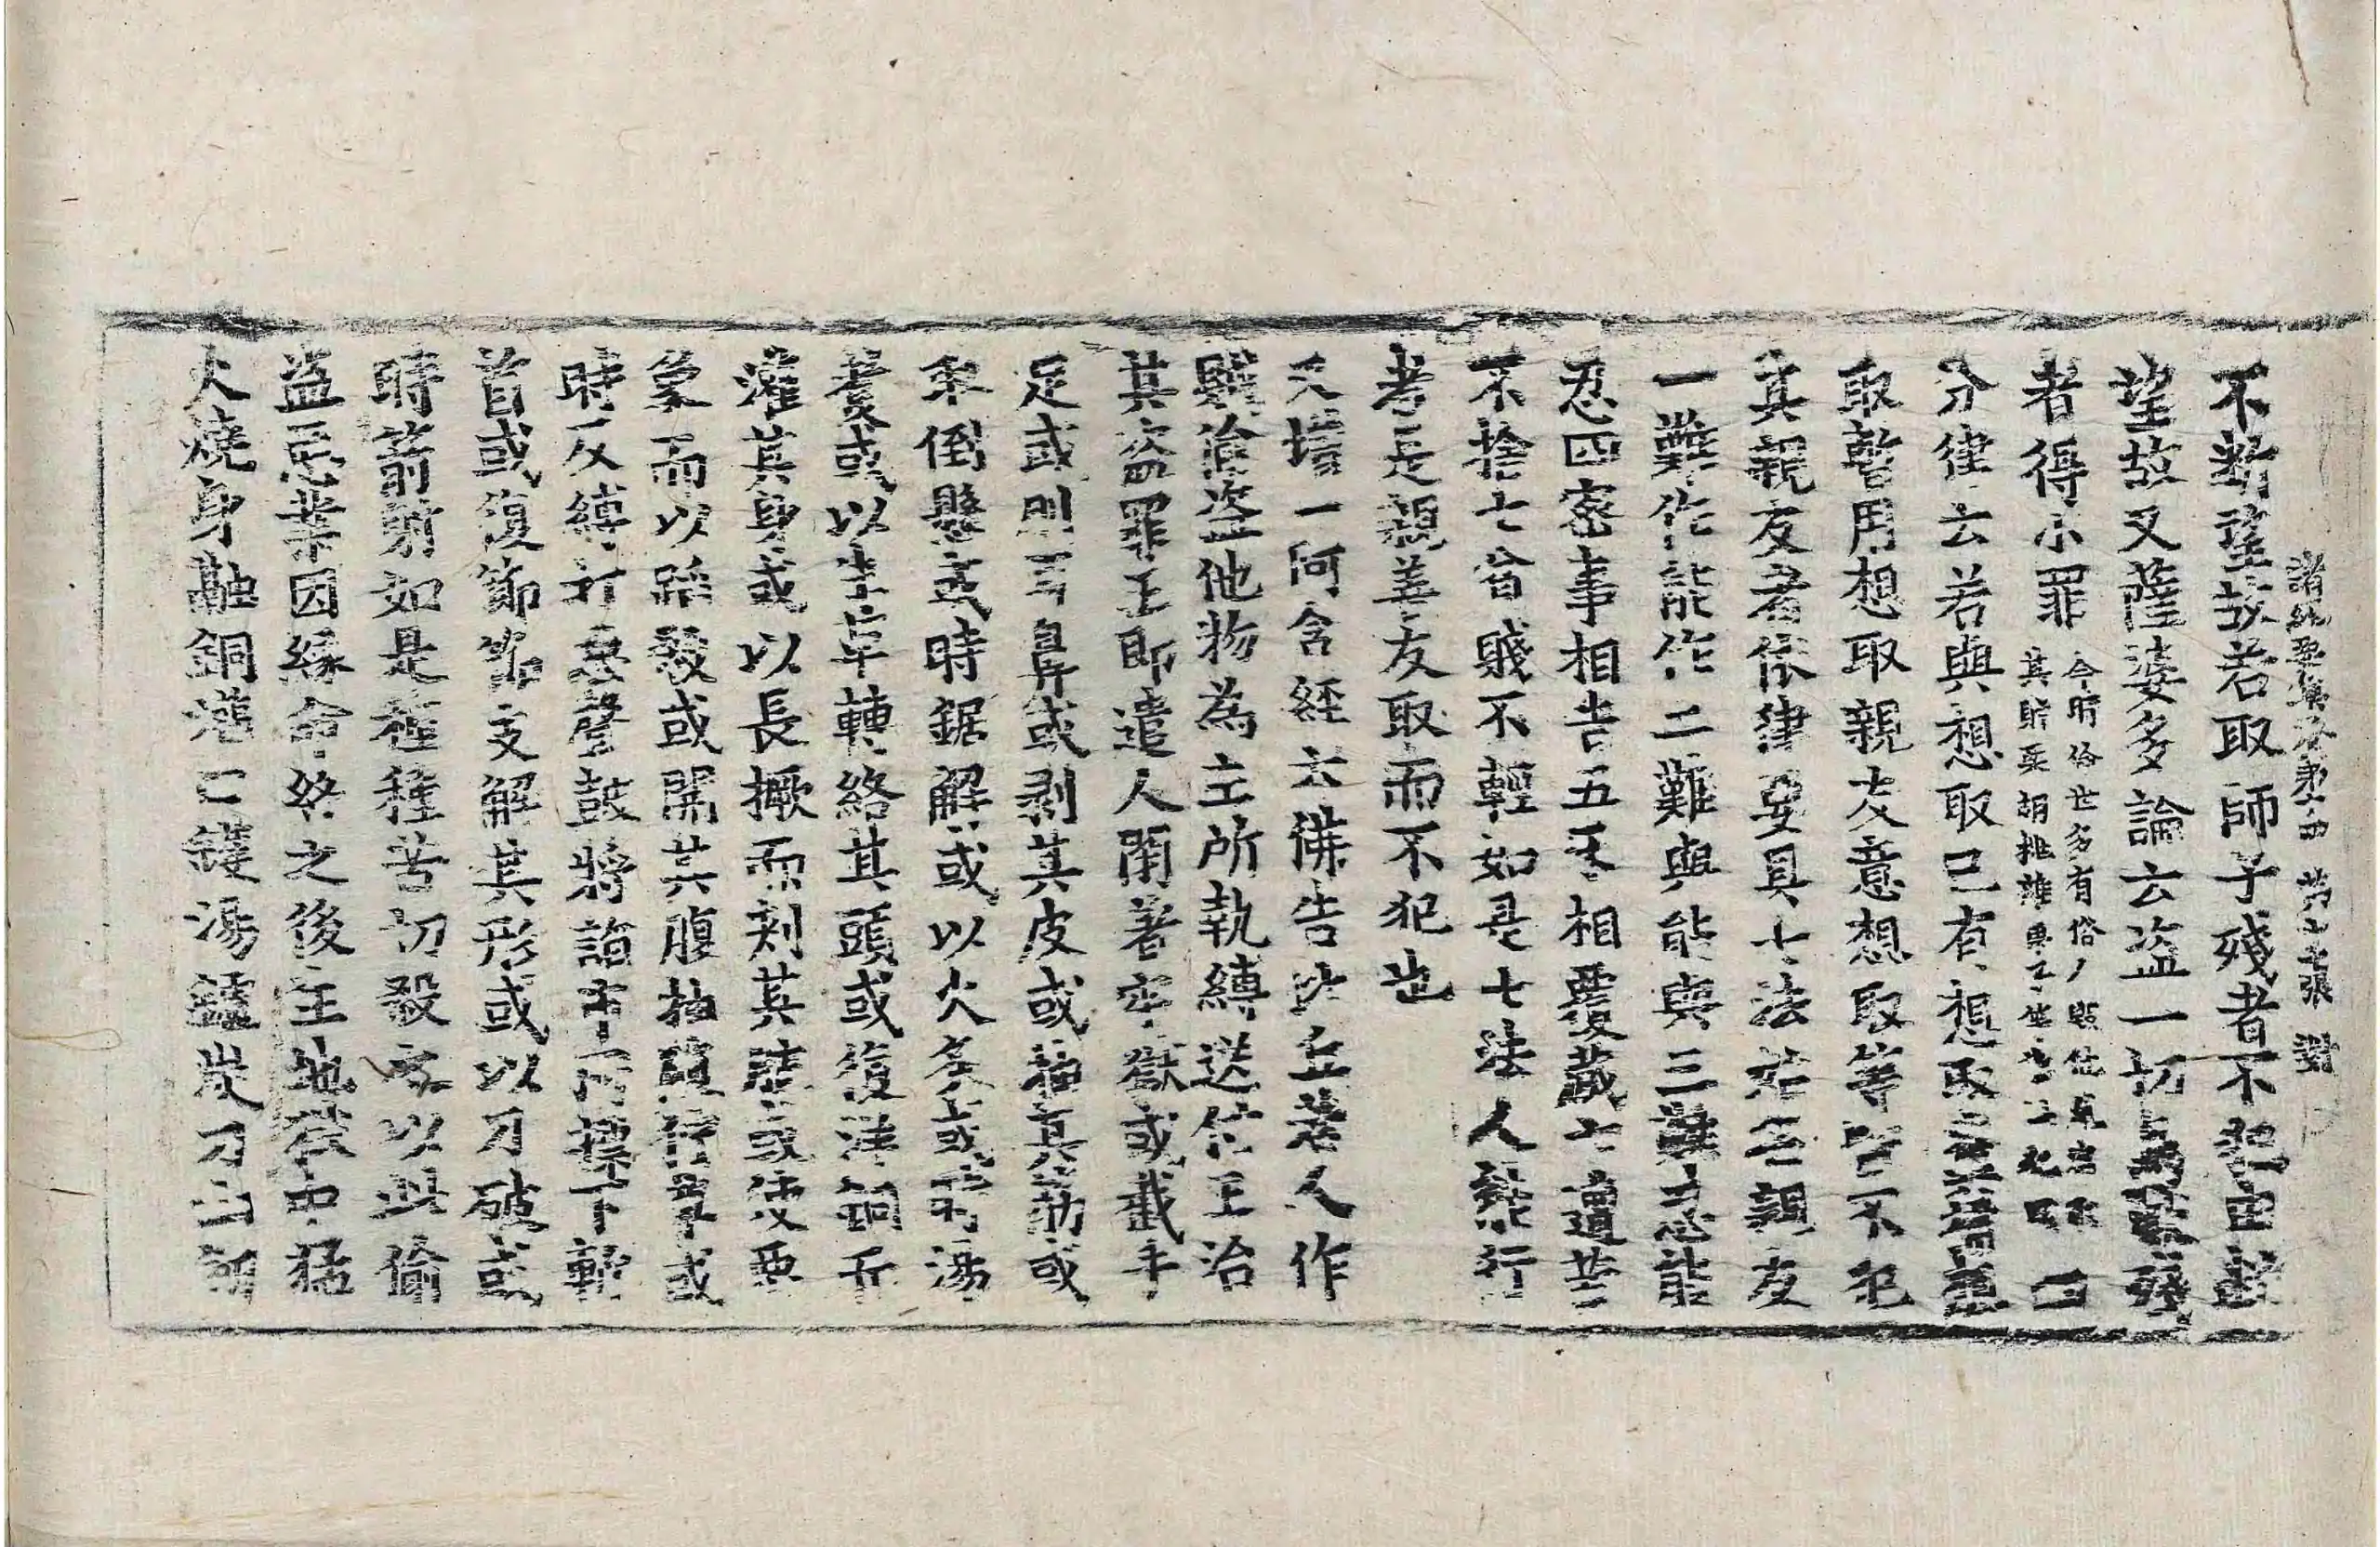 諸經要集卷第十四　第十七張　對
不斷望故若取師子殘者不犯由獸
望故又薩婆多論云盜一切鳥獸殘
者得小罪
今時俗世多有俗人
其時
四
分律云若與想取己有想取
取暫用想取親友意想取等皆不犯
其親友者依律要具七法始名親友
一難作能作二難與能與三難忍能
忍四密事相告五互相覆藏六遭苦
不捨七貧賤不輕如是七法人能行
者是親善友取而不犯也
又增一阿含經云佛告比丘若人作
賊偷盜他物為主所執縛送付王治
其盜罪王即遣人閉著牢獄或截手
足或刖耳鼻或剥其皮或抽其筋或
取倒懸或時鋸解或以火炙或鑊湯
煮或以生革轉絡其頭或復洋銅
灌其身或以長橛而刾其 或使惡
象而以蹈殺或開其腹抽腸 草或
時反縛打惡聲鼓將詣市 標下斬
首或復節節支解其形或以刀破或
時箭射如是種種苦切殺之以此偷
盜惡業因緣命終之後生地獄中猛
火燒身融銅灌口鑊湯鑪炭刀山劒